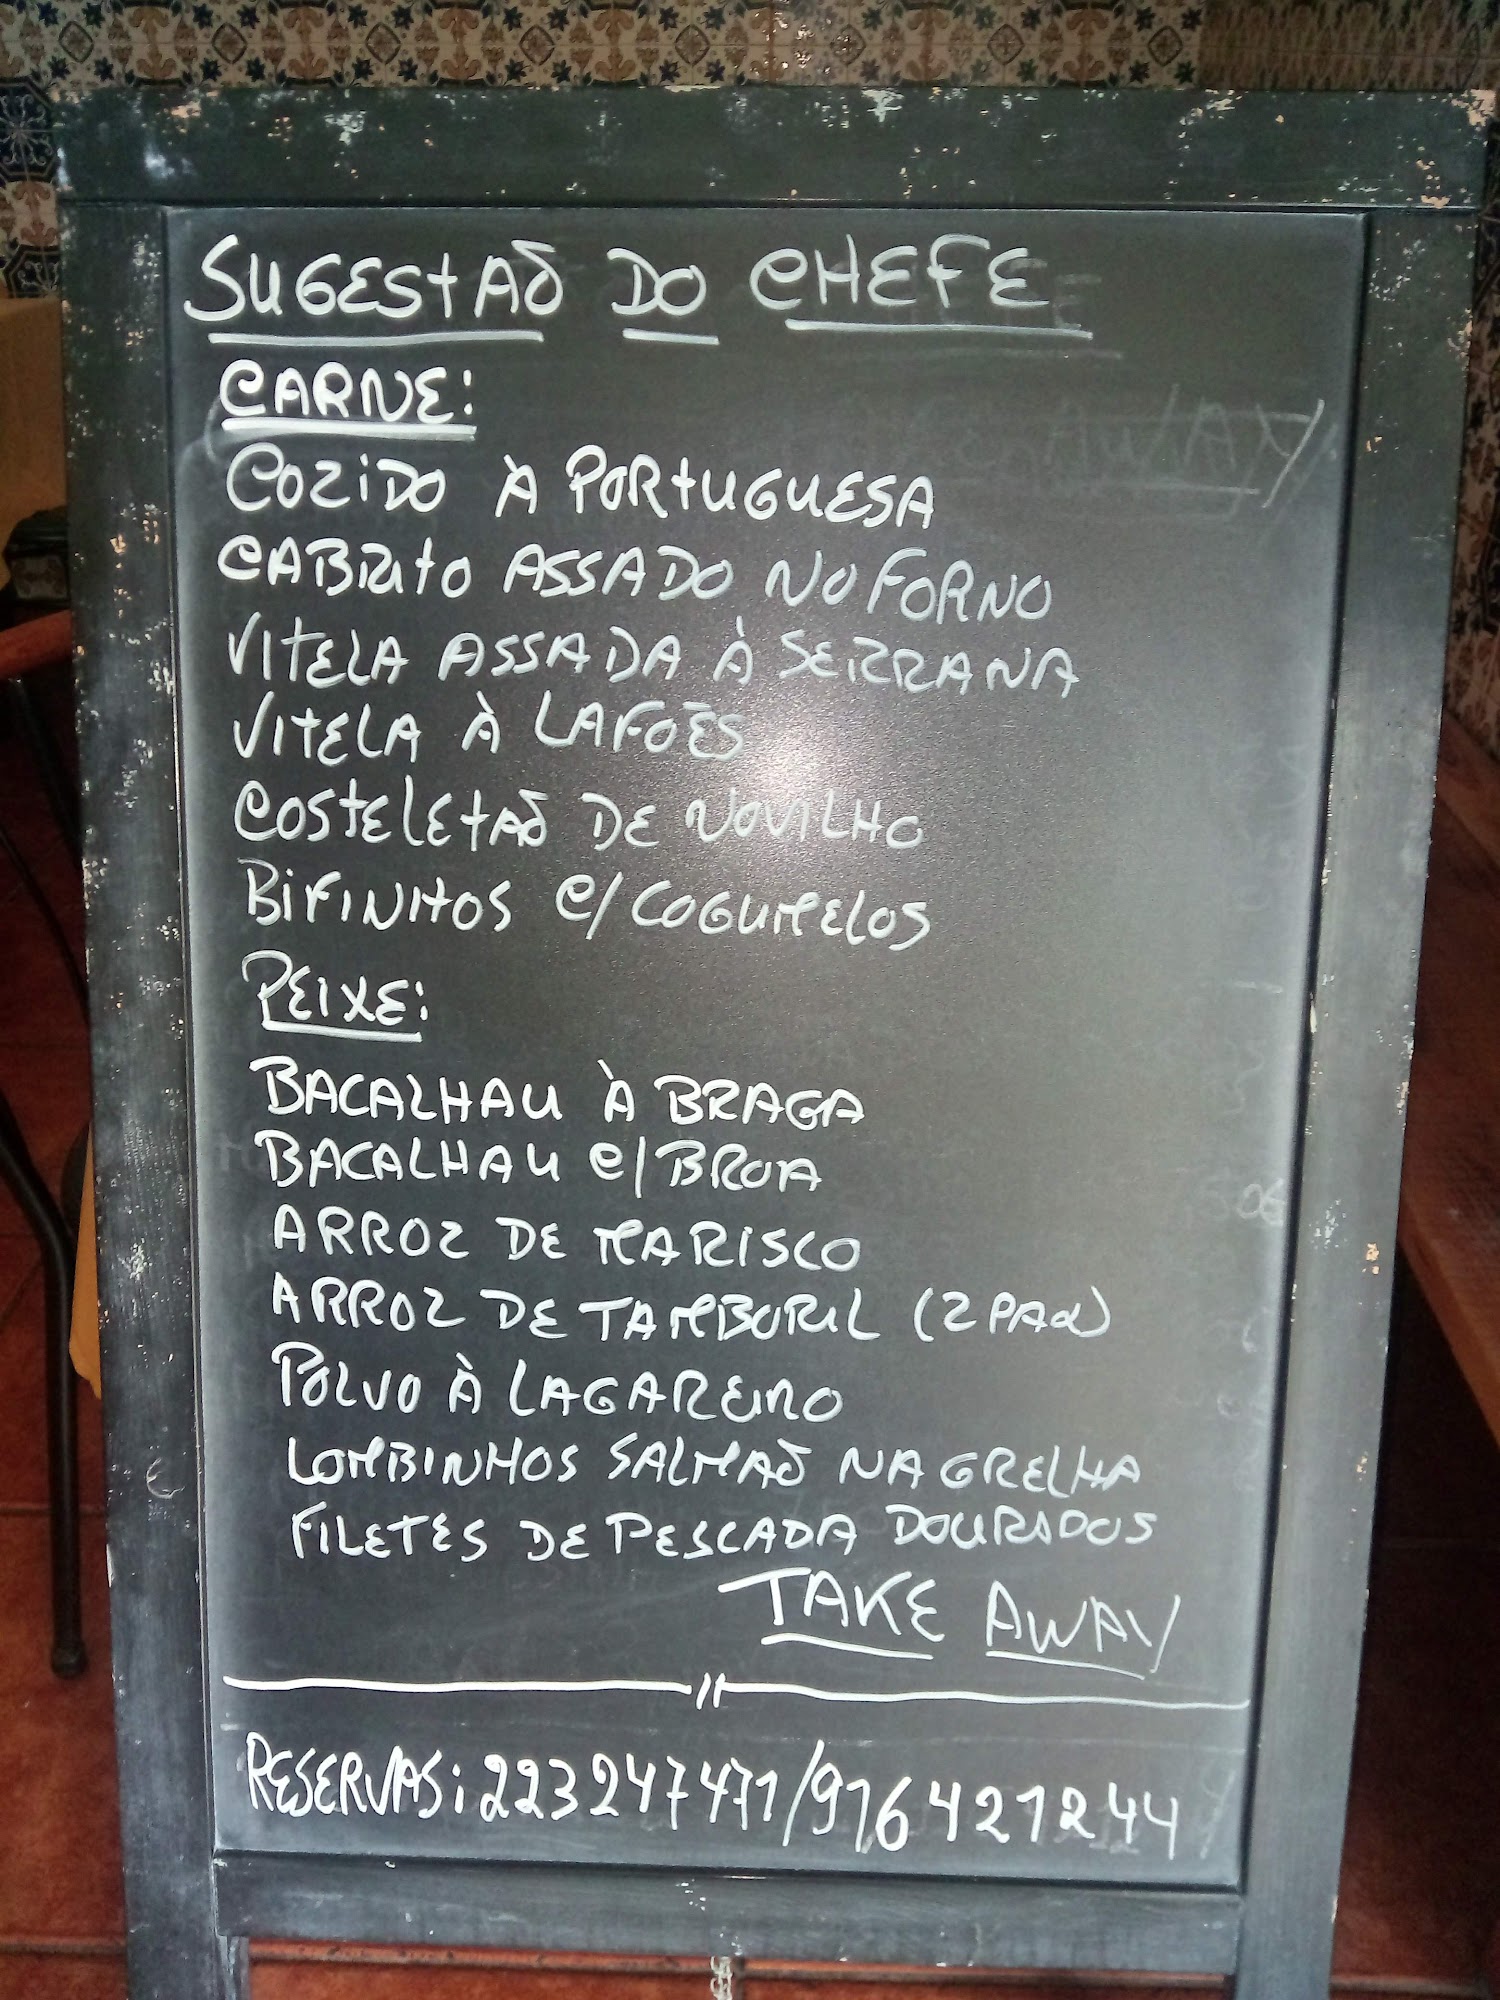 SUGESTÃO DO CHEFE
CARNE:
COZIDO À PORTUGUESA
CABRITO ASSADO NO FORNO
VITELA ASSADA À SERRANA
VITELA À LAFÕES
COSTELETÃO DE NOVILHO
BIFINHOS C/ COGUMELOS
PEIXE:
BACALHAU À BRAGA
BACALHAU C/ BROA
ARROZ DE MARISCO
ARROZ DE TAMBORIL (2 PAX)
POLVO À LAGAREIRO
LOMBINHOS SALMÃO NA GRELHA
FILETES DE PESCADA DOURADOS
TAKE AWAY
RESERVAS: 223247471/916421244